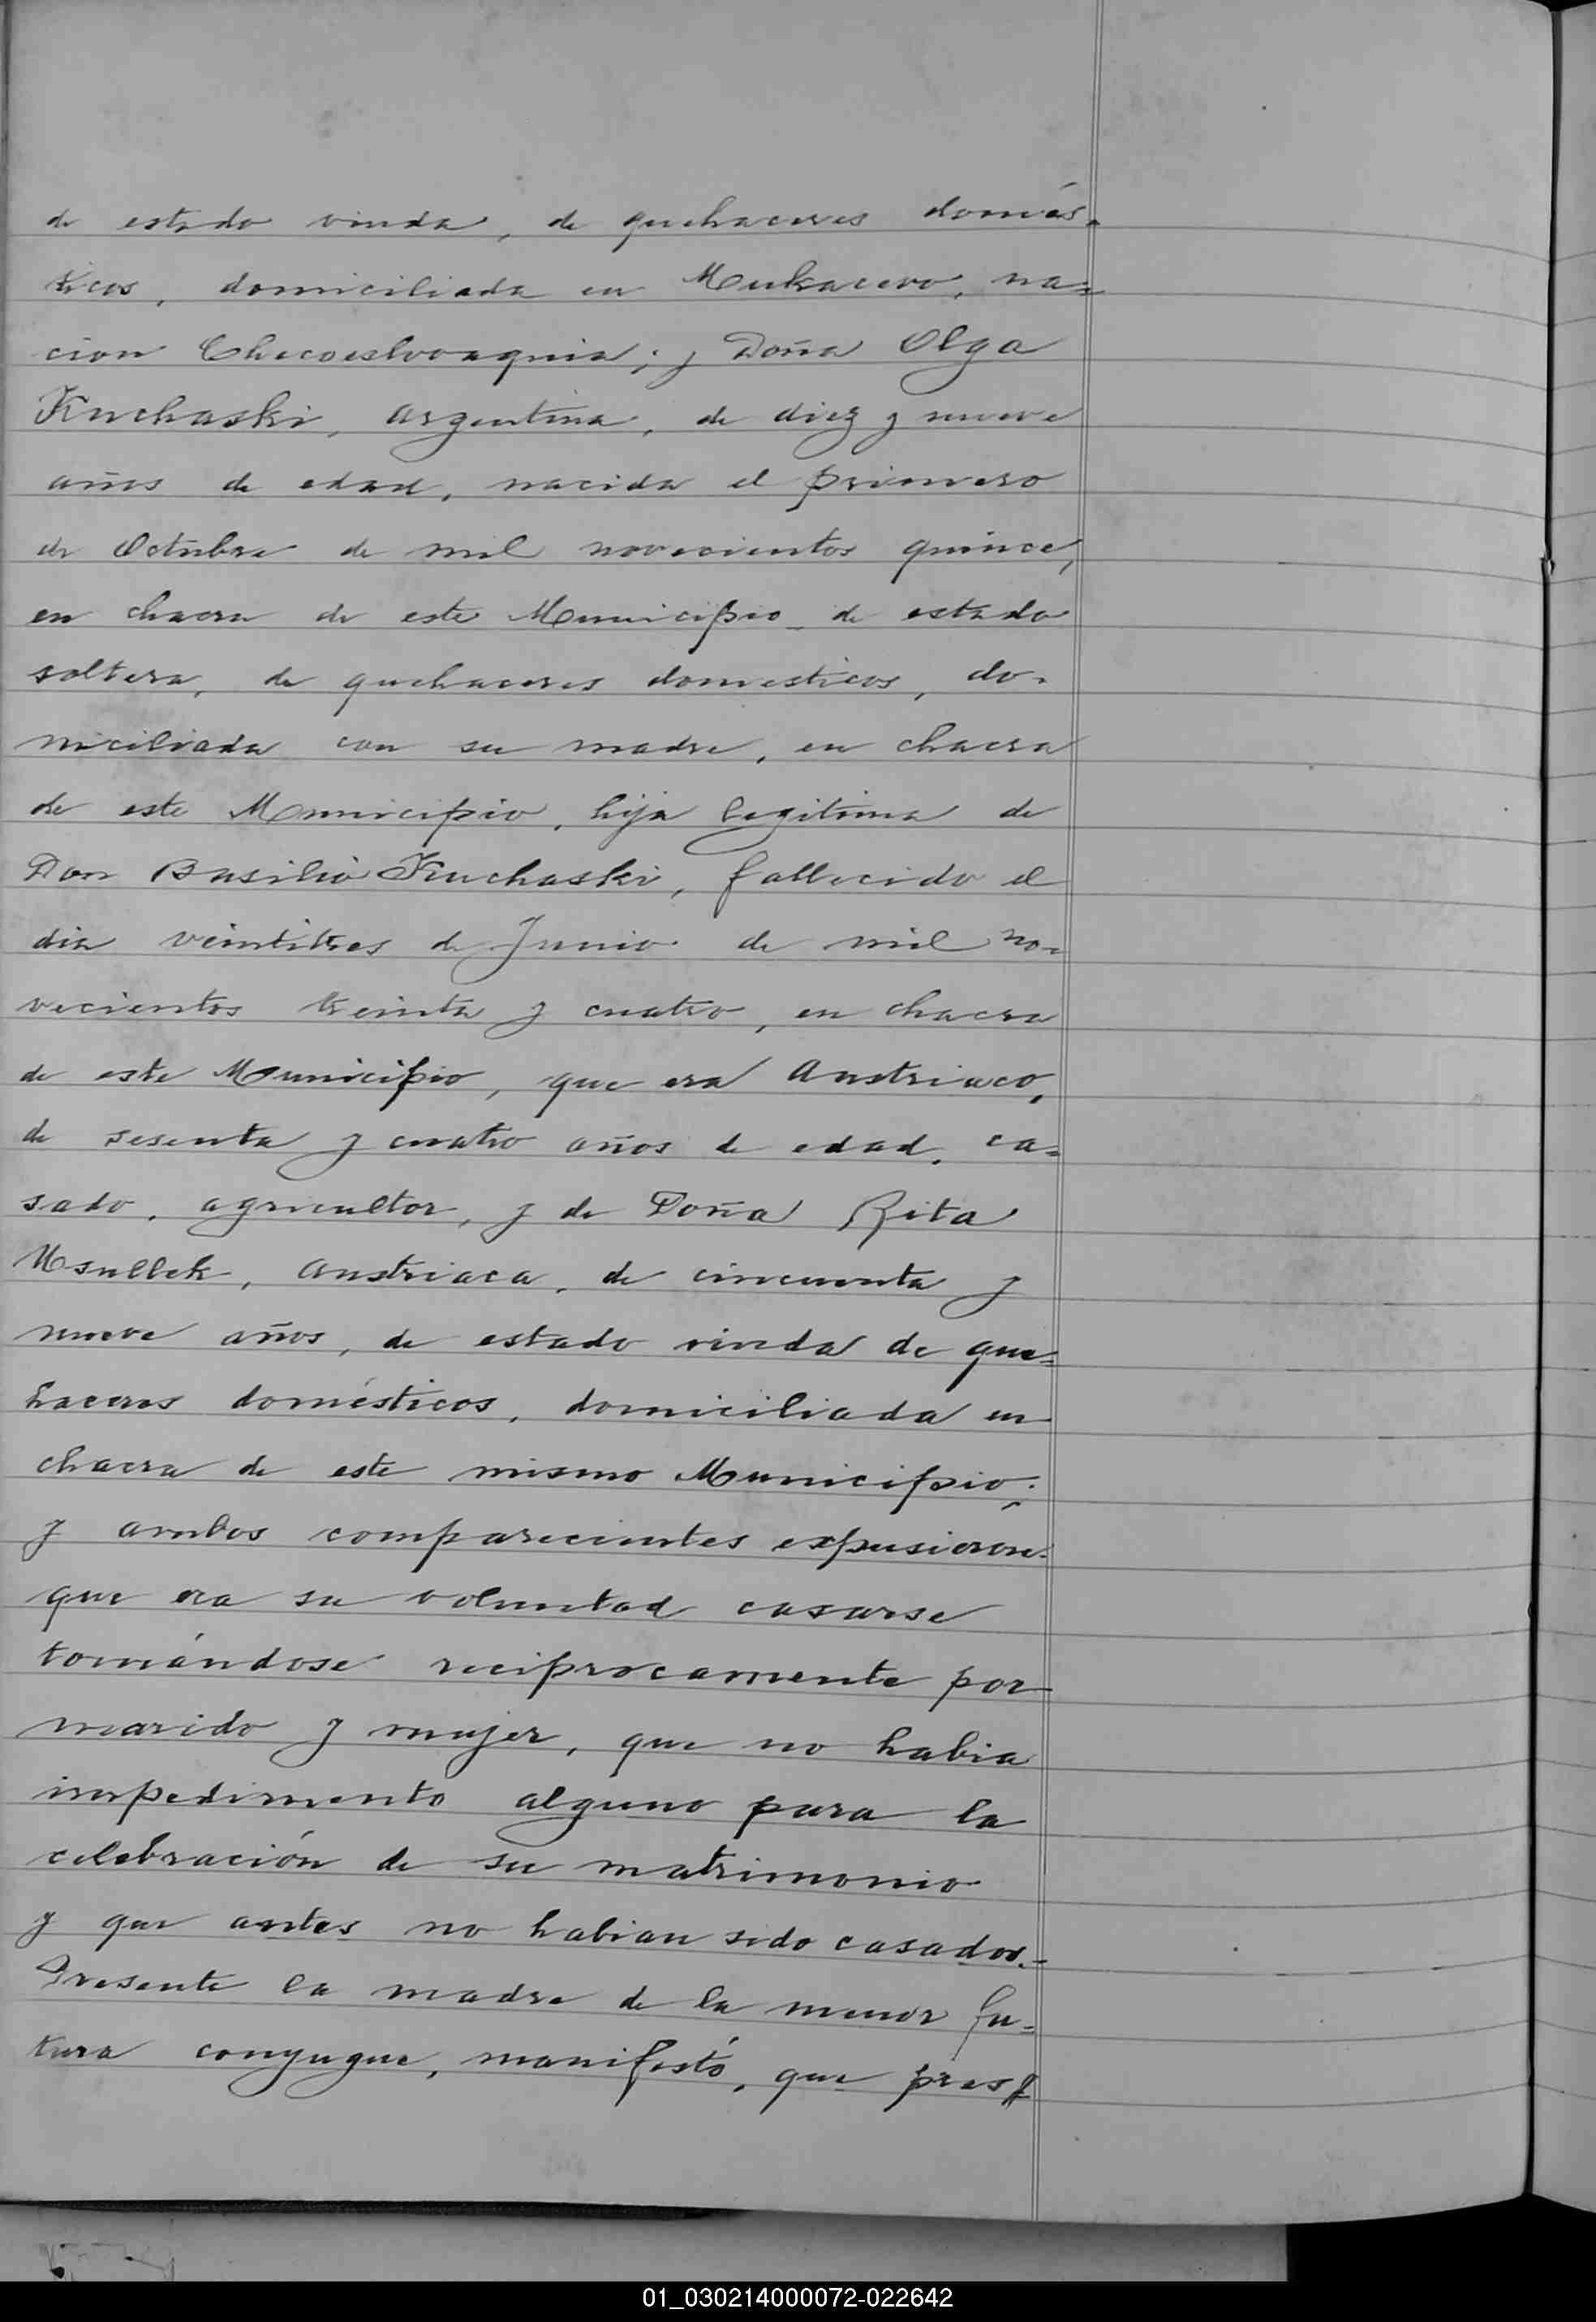 de estado viuda, de quehaceres domés-
ticos, domiciliada en Mukacevo, na=
cion Checoeslovaquia; y Doña Olga
Kuchaski, argentina, de diez y nueve
años de edad, nacida el primero
de Octubre de mil novecientos quince,
en chacra de este Municipio de estado
soltera, de quehaceres domesticos, do-
miciliada con su madre, en chacra
de este Municipio, hija legitima de
Don Basilio Kuchaski, fallecido el
dia veintitres de Junio de mil no=
vecientos treinta y cuatro, en chacra
de este Municipio, que era Austriaco,
de sesenta y cuatro años de edad, ca=
sado, agricultor, y de Doña Rita
austriaca, de cincuenta y
nueve años, de estado viuda de que=
haceres domésticos, domiciliada en
chacra de este mismo Municipio;
y ambos comparecientes expusieron-
que era su voluntad casarse
tomándose reciprocamente por
marido y mujer, que no habia
impedimento alguno para la
celebración de su matrimonio
y que antes no habian sido casados.-
Presente la madre de la menor fu=
tura conyugue, manifestó, que
01_030214000072-022642